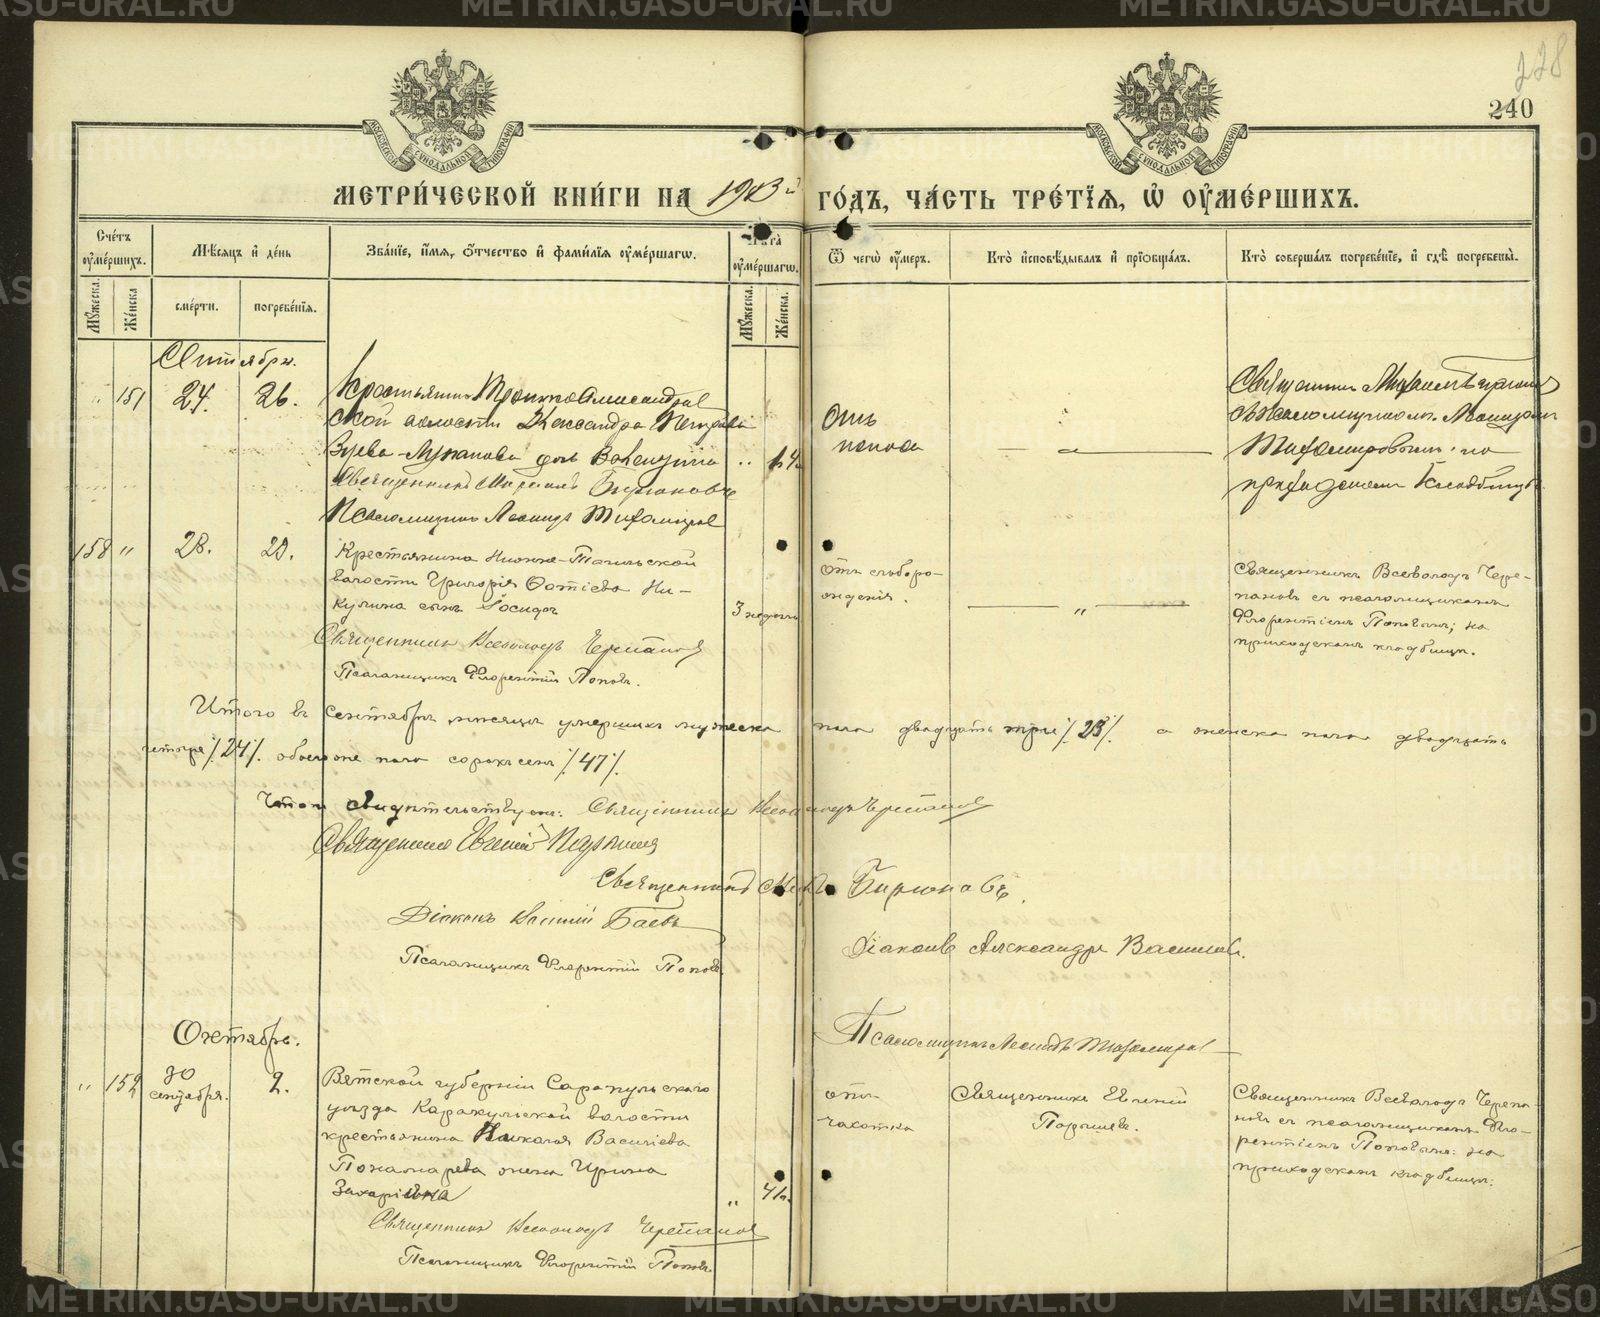 228
240
МОСКОВСКОЙ СѴНОДАЛЬНОЙ ТИПОГРАФІИ
МОСКОВСКОЙ СѴНОДАЛЬНОЙ ТИПОГРАФІИ
МЕТРИ́ЧЕСКОЙ КНИ́ГИ НА 1913й ГО́ДЪ, ЧА́СТЬ ТРЕ́ТІЯ, Ѡ ОУМЕ́РШИХЪ.
Сче́тъ оуме́ршихъ.
Мѣ́сяцъ и де́нь
Зва́ніе, и́мя, о́тчество и фами́лія оуме́ршагѡ.
Лѣта̀ оуме́ршагѡ.
Ѿ чегѡ̀ оу́меръ.
Кто̀ исповѣ́дывалъ и пріобща́лъ.
Кто̀ соверша́лъ погребе́ніе, и гдѣ̀ погребены̀.
Му́жеска.
Же́нска
сме́рти.
погребе́нія.
Му́жеска.
Же́нска.
Сентябрь.
151
24.
26.
Крестьянина Троицко Александров
ской волости Александра Петрова
Зуева-Лупанова дочь Валентина
Священникъ Михаилъ Бирюковъ
Псаломщикъ Леонидъ Тихомиров
Отъ
поноса
Священникъ Михаилъ
съ псаломщикомъ Леонидом
Тихомировымъ на
приходскомъ кладбищѣ.
158
"
28.
29.
Крестьянина Нижне-Тагильской
волости Григорія Фотіева Ни-
кулина сынъ Іосифъ
3 недѣли
Священникъ Всеволодъ Черепановъ
Псаломщикъ Флорентій Поповъ.
отъ слаборо-
жденія.
"
Священникъ Всеволодъ Чере-
пановъ съ псаломщикомъ
Флорентіемъ Поповымъ; на
приходскомъ кладбищѣ.
Итого въ Сентябрѣ мѣсяцѣ умершихъ мужеска пола двадцать три /.23/. а женска пола двадцать
четыре /.24/. обоего же пола сорокъ семь /.47/.
Въ томъ свидѣтельствуемъ: Священникъ Всеволодъ Черепановъ
Священникъ Евгеній
Священникъ Мих. Бирюковъ.
Діаконъ Василій Баевъ
Діаконъ Александръ Васильев.
Псаломщикъ Флорентій Поповъ.
Псаломщикъ Леонидъ Тихомиров
Октябрь.
"
152
30
сентября.
2.
Вятской губерніи Сарапульскаго
уѣзда Каракулской волости
крестьянина Николая Васильева
Пономарева жена Ирина
Захаріевна
"
41г.
Священникъ Всеволодъ Черепановъ
Псаломщикъ Флорентій Поповъ.
отъ
чахотки
Священникъ Евгеній
Священникъ Всеволодъ Черепа-
новъ съ псаломщикомъ Фло-
рентіемъ Поповымъ: на
приходскомъ кладбищѣ.
METRIKI.GASO-URAL.RU